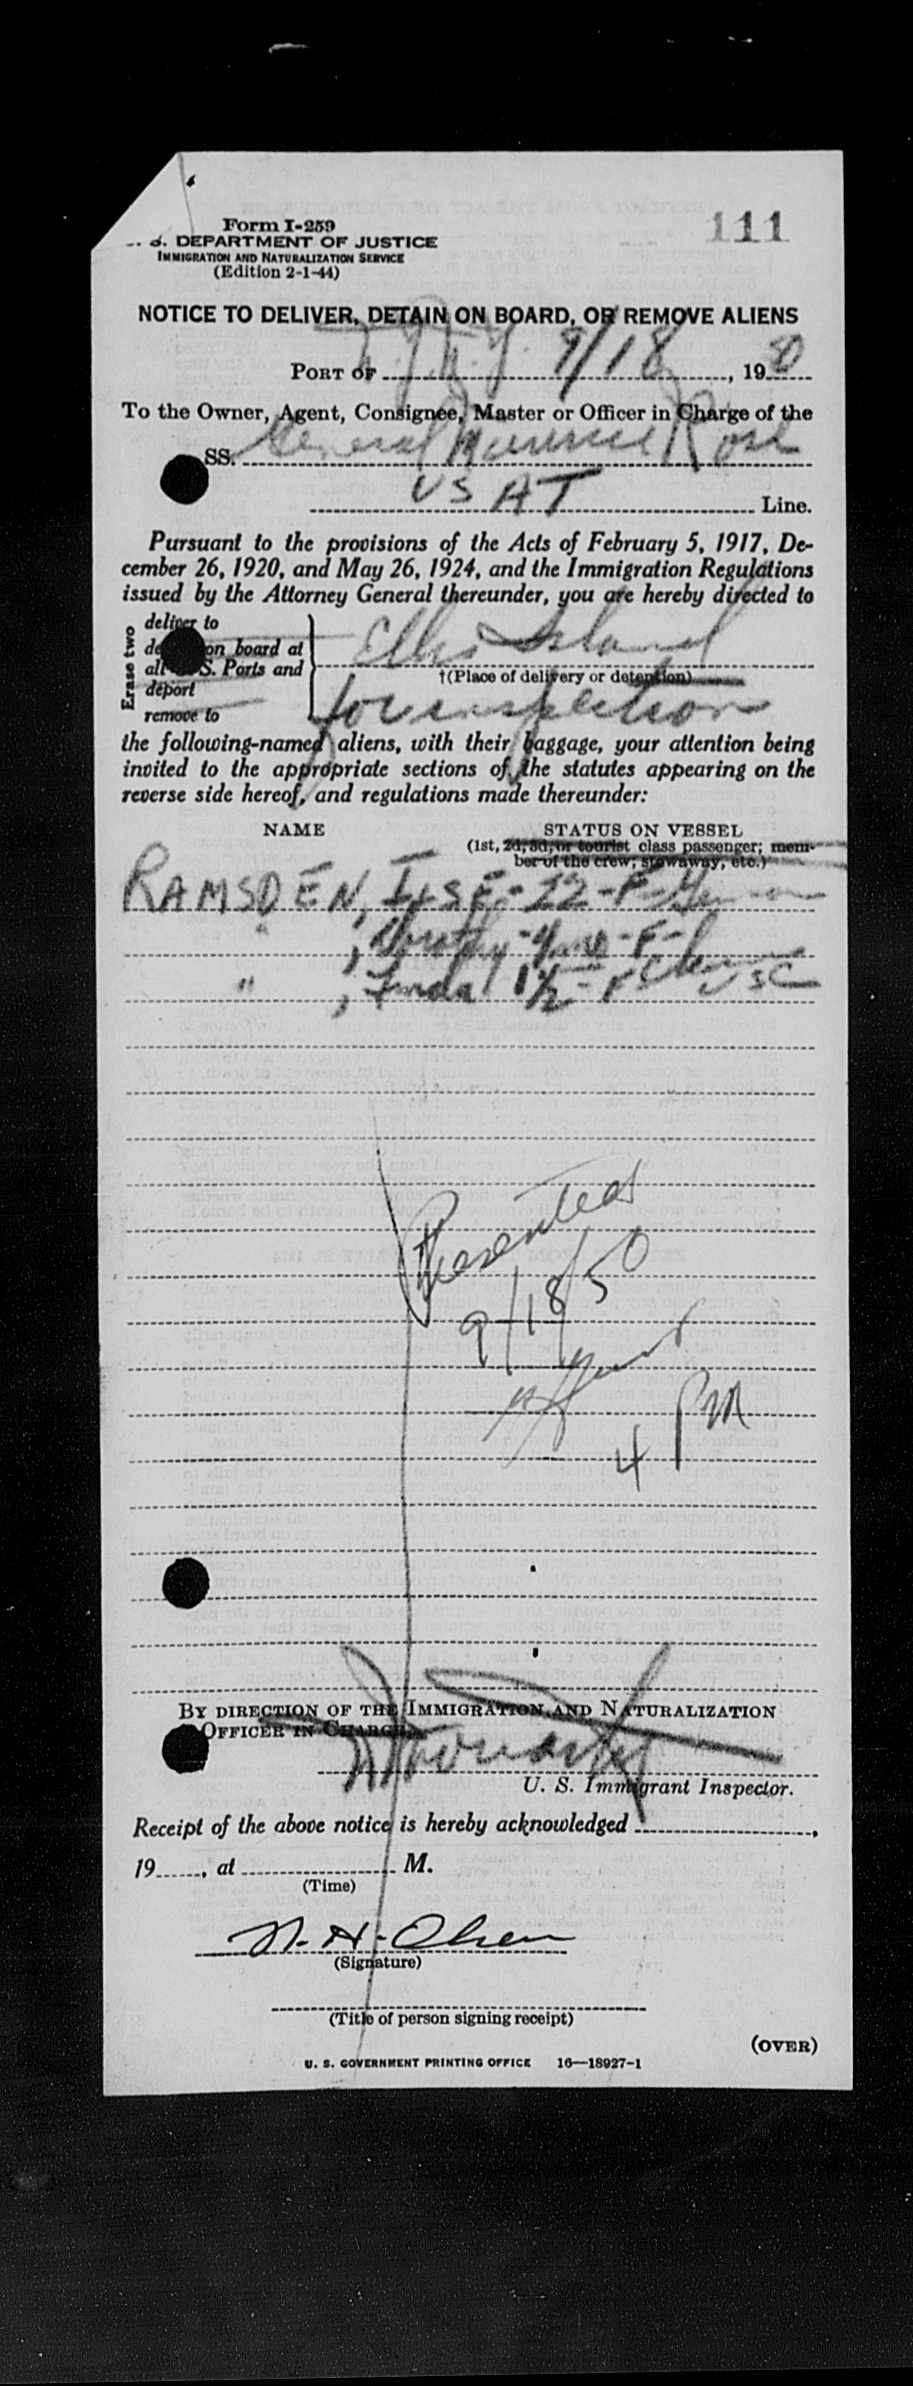 111
Form I-259
U. S. DEPARTMENT OF JUSTICE
IMMIGRATION AND NATURALIZATION SERVICE
(Edition 2-1-44)
NOTICE TO DELIVER, DETAIN ON BOARD, OR REMOVE ALIENS
PORT OF N.Y. 9/18, 1950
To the Owner, Agent, Consignee, Master or Officer in Charge of the
SS. General Maurice Rose
USAT Line.
Pursuant to the provisions of the Acts of February 5, 1917, De-
cember 26, 1920, and May 26, 1924, and the Immigration Regulations
issued by the Attorney General thereunder, you are hereby directed to
Erase two
deliver to
detain on board at
all U. S. Ports and
deport
remove to
Ellis Island
†(Place of delivery or detention)
for inspection
the following-named aliens, with their baggage, your attention being
invited to the appropriate sections of the statutes appearing on the
reverse side hereof, and regulations made thereunder:
NAME STATUS ON VESSEL
(1st, 2d, 3d, or tourist class passenger; mem-
ber of the crew; stowaway, etc.)
RAMSDEN, ILSE - 22 - F - German
" , Dorothy - 4 mos - F -
" , Linda 1 1/2 - F USC
Presented
9/18/50
4 PM
BY DIRECTION OF THE IMMIGRATION AND NATURALIZATION
OFFICER IN CHARGE.
U. S. Immigrant Inspector.
Receipt of the above notice is hereby acknowledged ,
19 , at M.
(Time)
N. H. Olsen
(Signature)
(Title of person signing receipt)
(OVER)
U. S. GOVERNMENT PRINTING OFFICE 16—18927-1